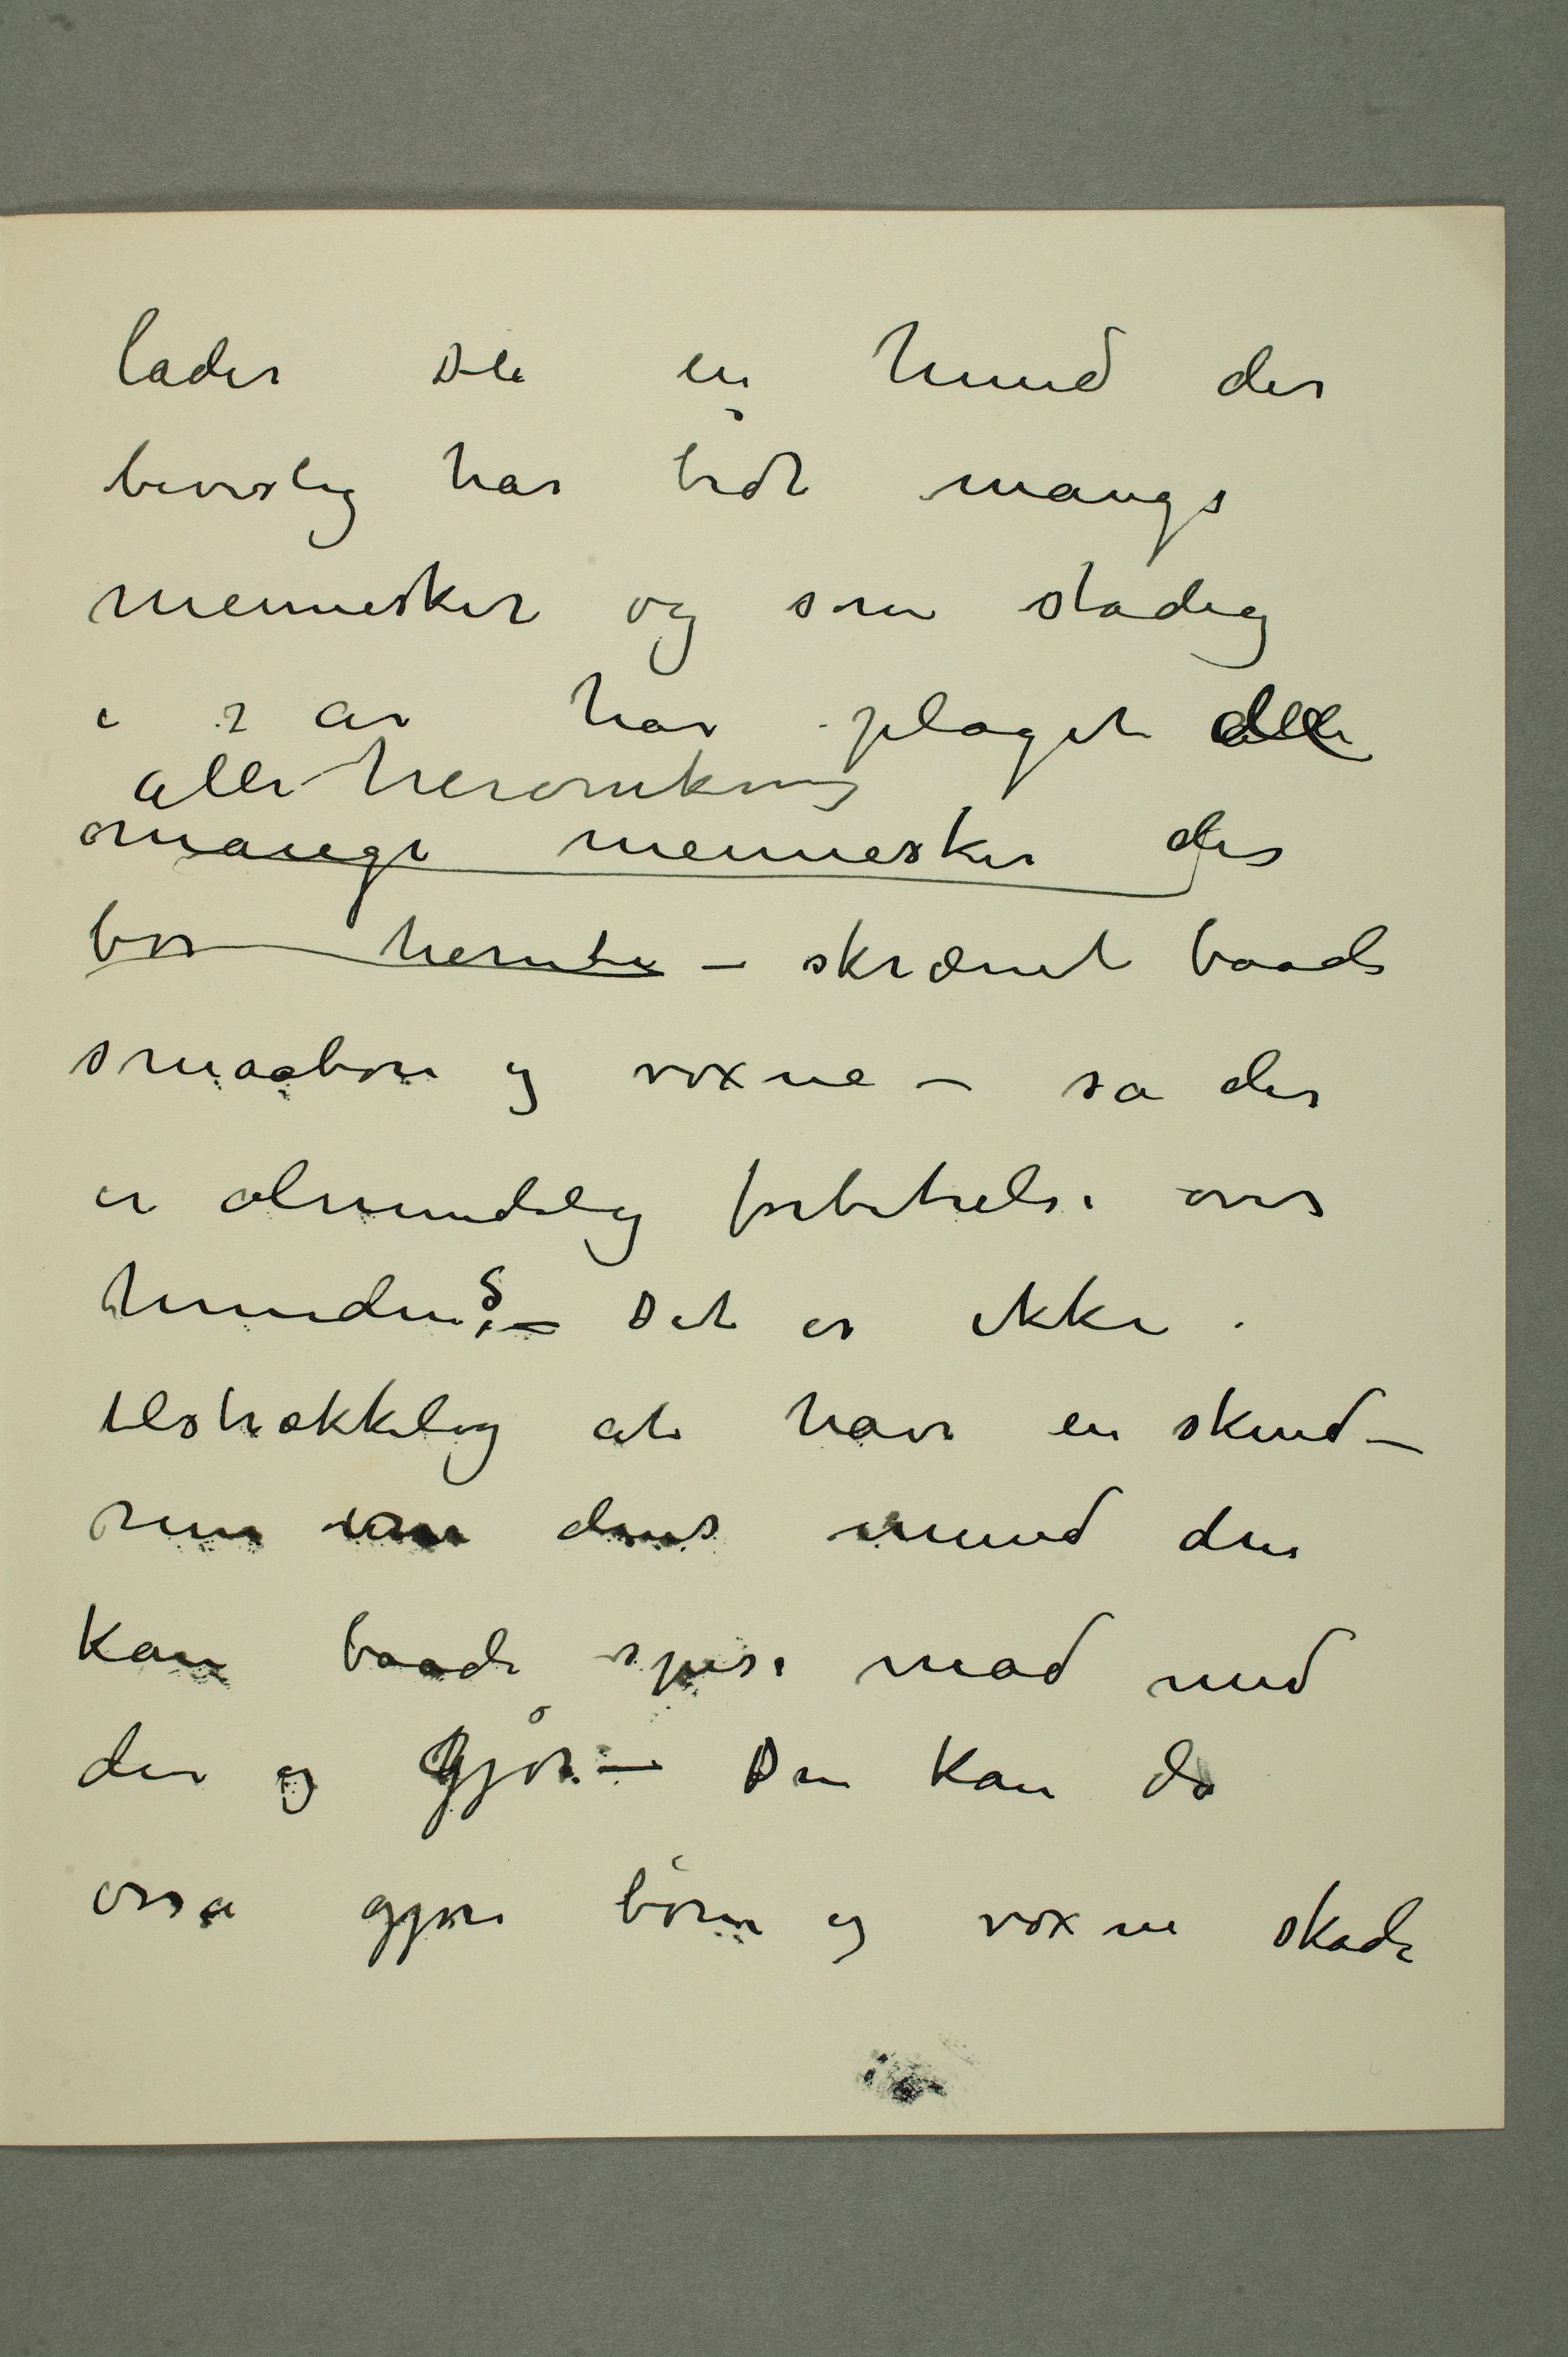 lader De en hund der
bevislig har bidt mange
mennesker og som stadig
i 2 år har plaget alle
alle heromkring
mange mennesker der
bor herute – skræmt baade
smaabørn og voxne – så der
er almindelig forbitrelse over
hunden. – Det er ikke
tilstrækkelig at have en skind–
rem om dens mund den
kan baade spise mad med
den og gjø. – Den kan da
osså gjøre børn og voxne skade